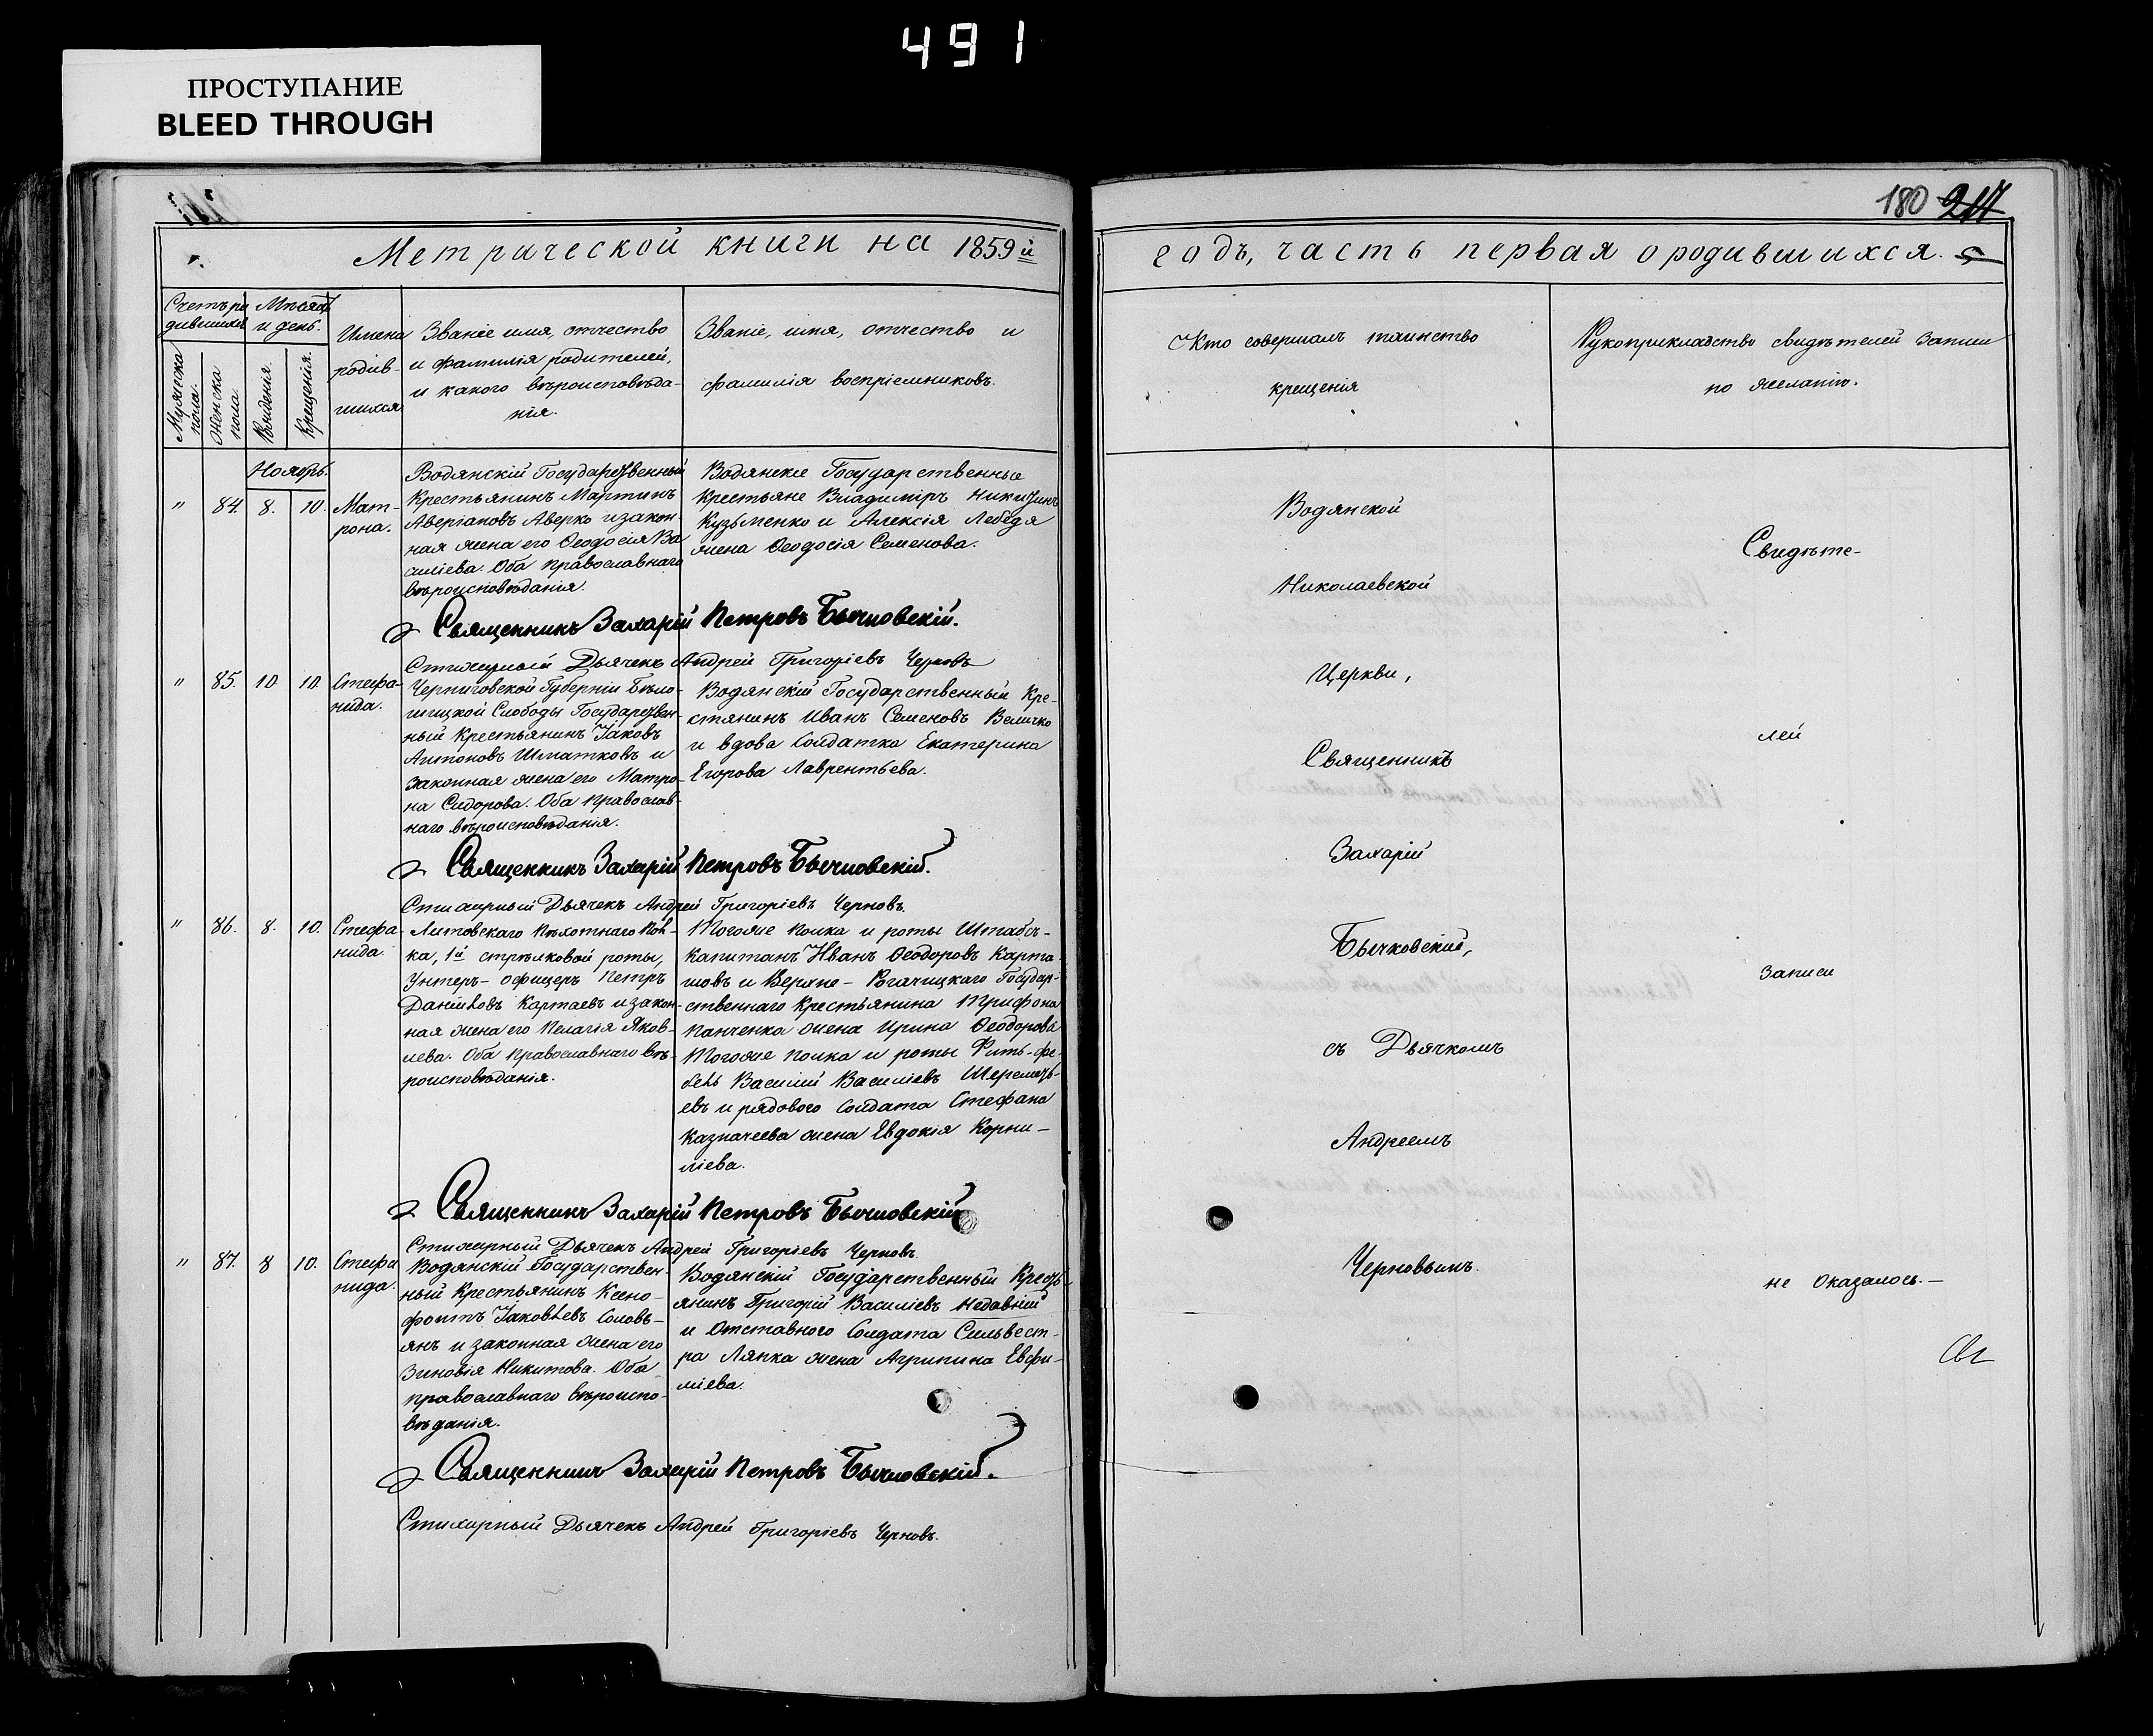 491
ПРОСТУПАНИЕ
BLEED THROUGH
180 217
Метрической книги на 1859й
годъ, часть первая о родившихся.
Счетъ ро
дившихся
Мѣсяцъ
и день.
Мужеска
пола.
Женска
пола.
Рожденія.
Крещенія.
Имена
родив-
шихся
Званіе имя, отчество
и фамилія родителей,
и какого вѣроисповѣда-
нія.
Званіе, имя, отчество и
фамилія воспріемниковъ.
Кто совершалъ таинство
крещенія
Рукоприкладство свидѣтелей записи
по желанію.
Ноябрь.
" 84. 8. 10. Мат-
рона.
Водянскій Государственный
Крестьянинъ Мартинъ
Аверіановъ Аверко и закон-
ная жена его Ѳеодосія Ва
силіева. Оба православнаго
вѣроисповѣданія.
Водянскіе Государственные
Крестьяне Владиміръ Никитинъ
Кузьменко и Алексія Лебедя
жена Ѳеодосія Семенова.
Священникъ Захарій Петровъ Бычковскій.
Стихарный Дьячекъ Андрей Григоріевъ Черновъ
" 85. 10 10. Стефа-
нида.
Черниговской Губерніи Бѣло-
Слободы Государствен-
ный Крестьянинъ Іаковъ
Антоновъ Шматковъ и
законная жена его Матро-
на Сидорова. Оба православ-
наго вѣроисповѣданія.
Водянскій Государственный Кре-
стянинъ Иванъ Семеновъ Величко
и вдова Солдатка Екатерина
Егорова Лаврентьева.
Священникъ Захарій Петровъ Бычковскій.
Стихарный Дьячекъ Андрей Григоріевъ Черновъ.
" 86. 8. 10. Стефа-
нида.
Литовскаго Пѣхотнаго Пол-
ка, 1й стрѣлковой роты,
Унтеръ-офицеръ Петръ
Даніиловъ Картаевъ и закон-
ная жена его Пелагія Яков-
лева. Оба православнаго вѣ-
роисповѣданія.
Тогоже полка и роты Штабсъ-
Капитанъ Иванъ Ѳеодоровъ Карта-
шовъ и Верхне-Рогачицкаго Государ-
ственнаго Крестьянина Трифона
Панченка жена Ирина Ѳеодорова
Тогоже полка и роты Фить-фе-
бель Василій Василіевъ Шереметь-
евъ и рядового Солдата Стефана
Казначеева жена Евдокія Корни-
ліева.
Священникъ Захарій Петровъ Бычковскій
Стихарный Дьячекъ Андрей Григоріевъ Черновъ.
" 87. 8 10. Стефа
нида.
Водянскій Государствен-
ный Крестьянинъ Ксено-
фонтъ Іаковлевъ Соловь-
янъ и законная жена его
Зиновія Никитова. Оба
православнаго вѣроиспо-
вѣданія.
Водянскій Государственный Кресть-
янинъ Григорій Василіевъ Недавній
и Отставного Солдата Сильвест-
ра Ляпка жена Агрипина Евфи-
міева.
Священникъ Захарій Петровъ Бычковскій.
Стихарный Дьячекъ Андрей Григоріевъ Черновъ.
Водянской
Николаевской
Церкви,
Священникъ
Захарій
Бычковскій,
съ Дьячкомъ
Андреемъ
Черновымъ.
Свидѣте-
лей
записи
не оказалось.-